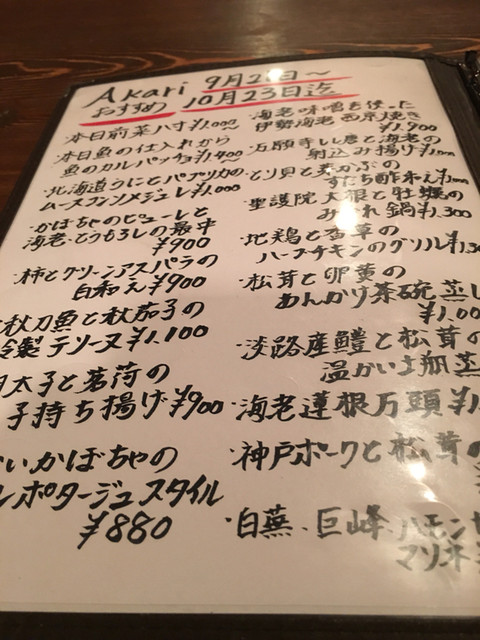 Akari 9月2日〜
おすすめ 10月23日迄
本日前菜八寸¥1,000〜
本日魚の仕入れから
魚のカルパッチョ¥1,400
北海道うにとパプリカの
ムースコンソメジュレ¥1,000
・かぼちゃのピューレと
海老・とうもろしの最中
¥900
・柿とグリーンアスパラの
白和え¥900
秋刀魚と秋茄子の
冷製テリーヌ¥1,100
明太子と茗荷の
子持ち揚げ¥900
かぼちゃの
ポタージュスタイル
¥880
海老味噌を使った
伊勢海老西京焼き
¥1,900
石願寺しし唐と海老の
射込み揚げ¥1,000
・とり貝と菜かぶの
すだち酢和え¥1,000
聖護院大根と牡蠣の
みぞれ鍋¥1,300
・地鶏と香草の
ハーブチキンのグリル¥1,30
・松茸と卵黄の
あんかけ茶碗蒸し
¥1,00
・淡路産鱧と松茸の
温かい土瓶蒸
・海老蓮根万頭¥1
・神戸ポークと松茸の
・白蕪、巨峰、ハモン
マソネ